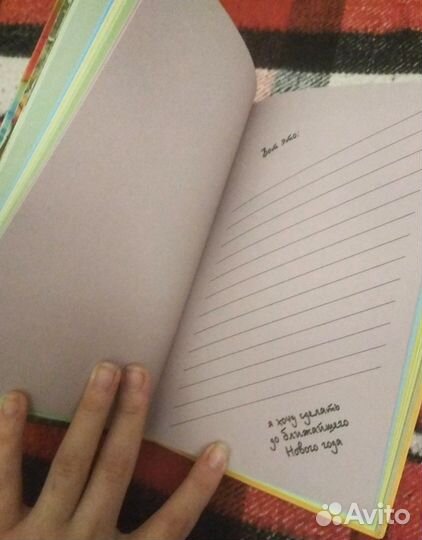 Вот это:
я хочу сделать
до ближайшего
Нового года
Avito